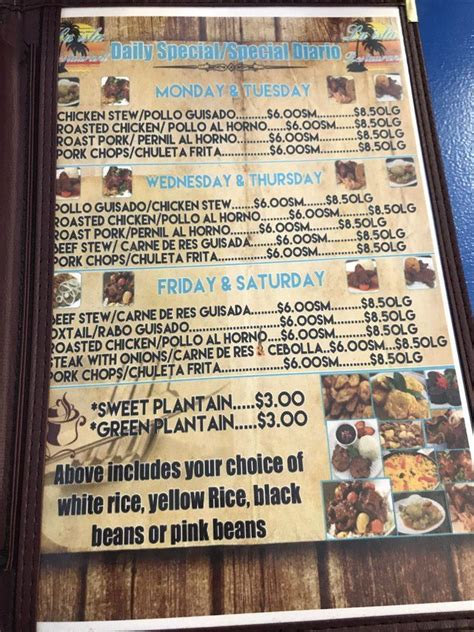 La isla
Restaurant
Daily Special/Special Diario
La isla
Restaurant
MONDAY & TUESDAY
CHICKEN STEW/POLLO GUISADO..............$6.00SM............$8.50LG
ROASTED CHICKEN/ POLLO AL HORNO....$6.00SM............$8.50LG
ROAST PORK/ PERNIL AL HORNO............$6.00SM............$8.50LG
PORK CHOPS/CHULETA FRITA..................$6.00SM............$8.50LG
WEDNESDAY & THURSDAY
POLLO GUISADO/CHICKEN STEW..............$6.00SM............$8.50LG
ROASTED CHICKEN/POLLO AL HORNO......$6.00SM............$8.50LG
ROAST PORK/PERNIL AL HORNO..............$6.00SM............$8.50LG
BEEF STEW/ CARNE DE RES GUISADA.......$6.00SM............$8.50LG
PORK CHOPS/CHULETA FRITA..................$6.00SM............$8.50LG
FRIDAY & SATURDAY
BEEF STEW/CARNE DE RES GUISADA........$6.00SM............$8.50LG
OXTAIL/RABO GUISADO..............................$8.50LG
ROASTED CHICKEN/POLLO AL HORNO......$6.00SM............$8.50LG
STEAK WITH ONIONS/CARNE DE RES CEBOLLA..$6.00SM........$8.50LG
PORK CHOPS/CHULETA FRITA..................$6.00SM............$8.50LG
*SWEET PLANTAIN.....$3.00
*GREEN PLANTAIN.....$3.00
Above includes your choice of
white rice, yellow Rice, black
beans or pink beans